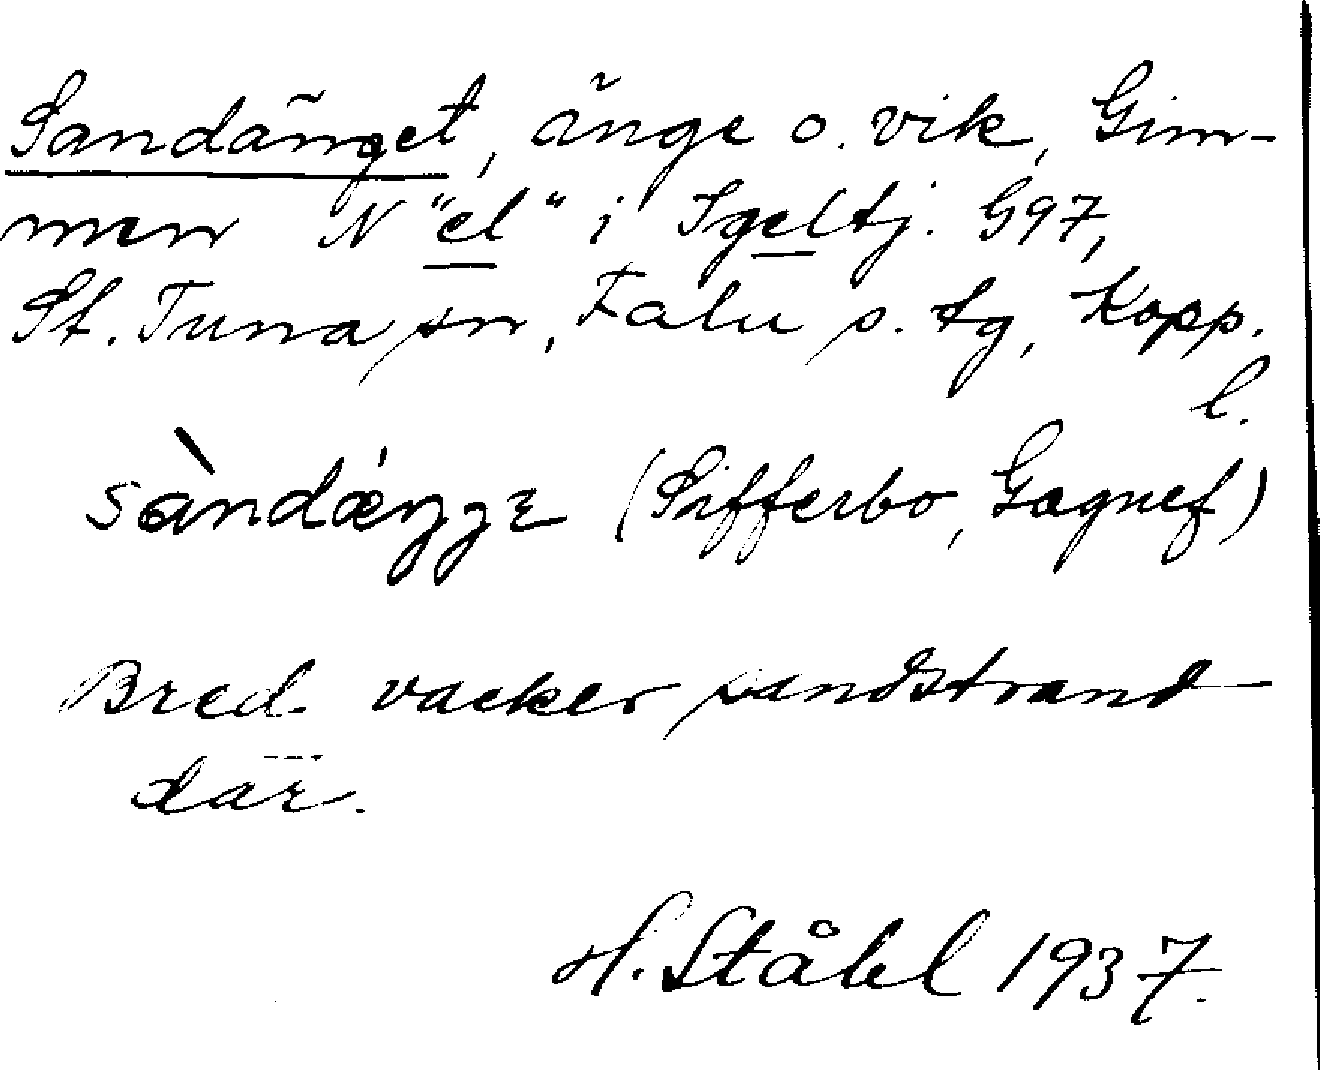 Sandänget, änge o. vik, Gim-
men N "el" i Igeltj. G97,
St. Tuna sn, Falu s. tg, Kopp.
l.
sàndǽŋgɛ (Sifferbo, Gagnef)
Bred vacker sandstrand
där.
H. Ståhl 1937.